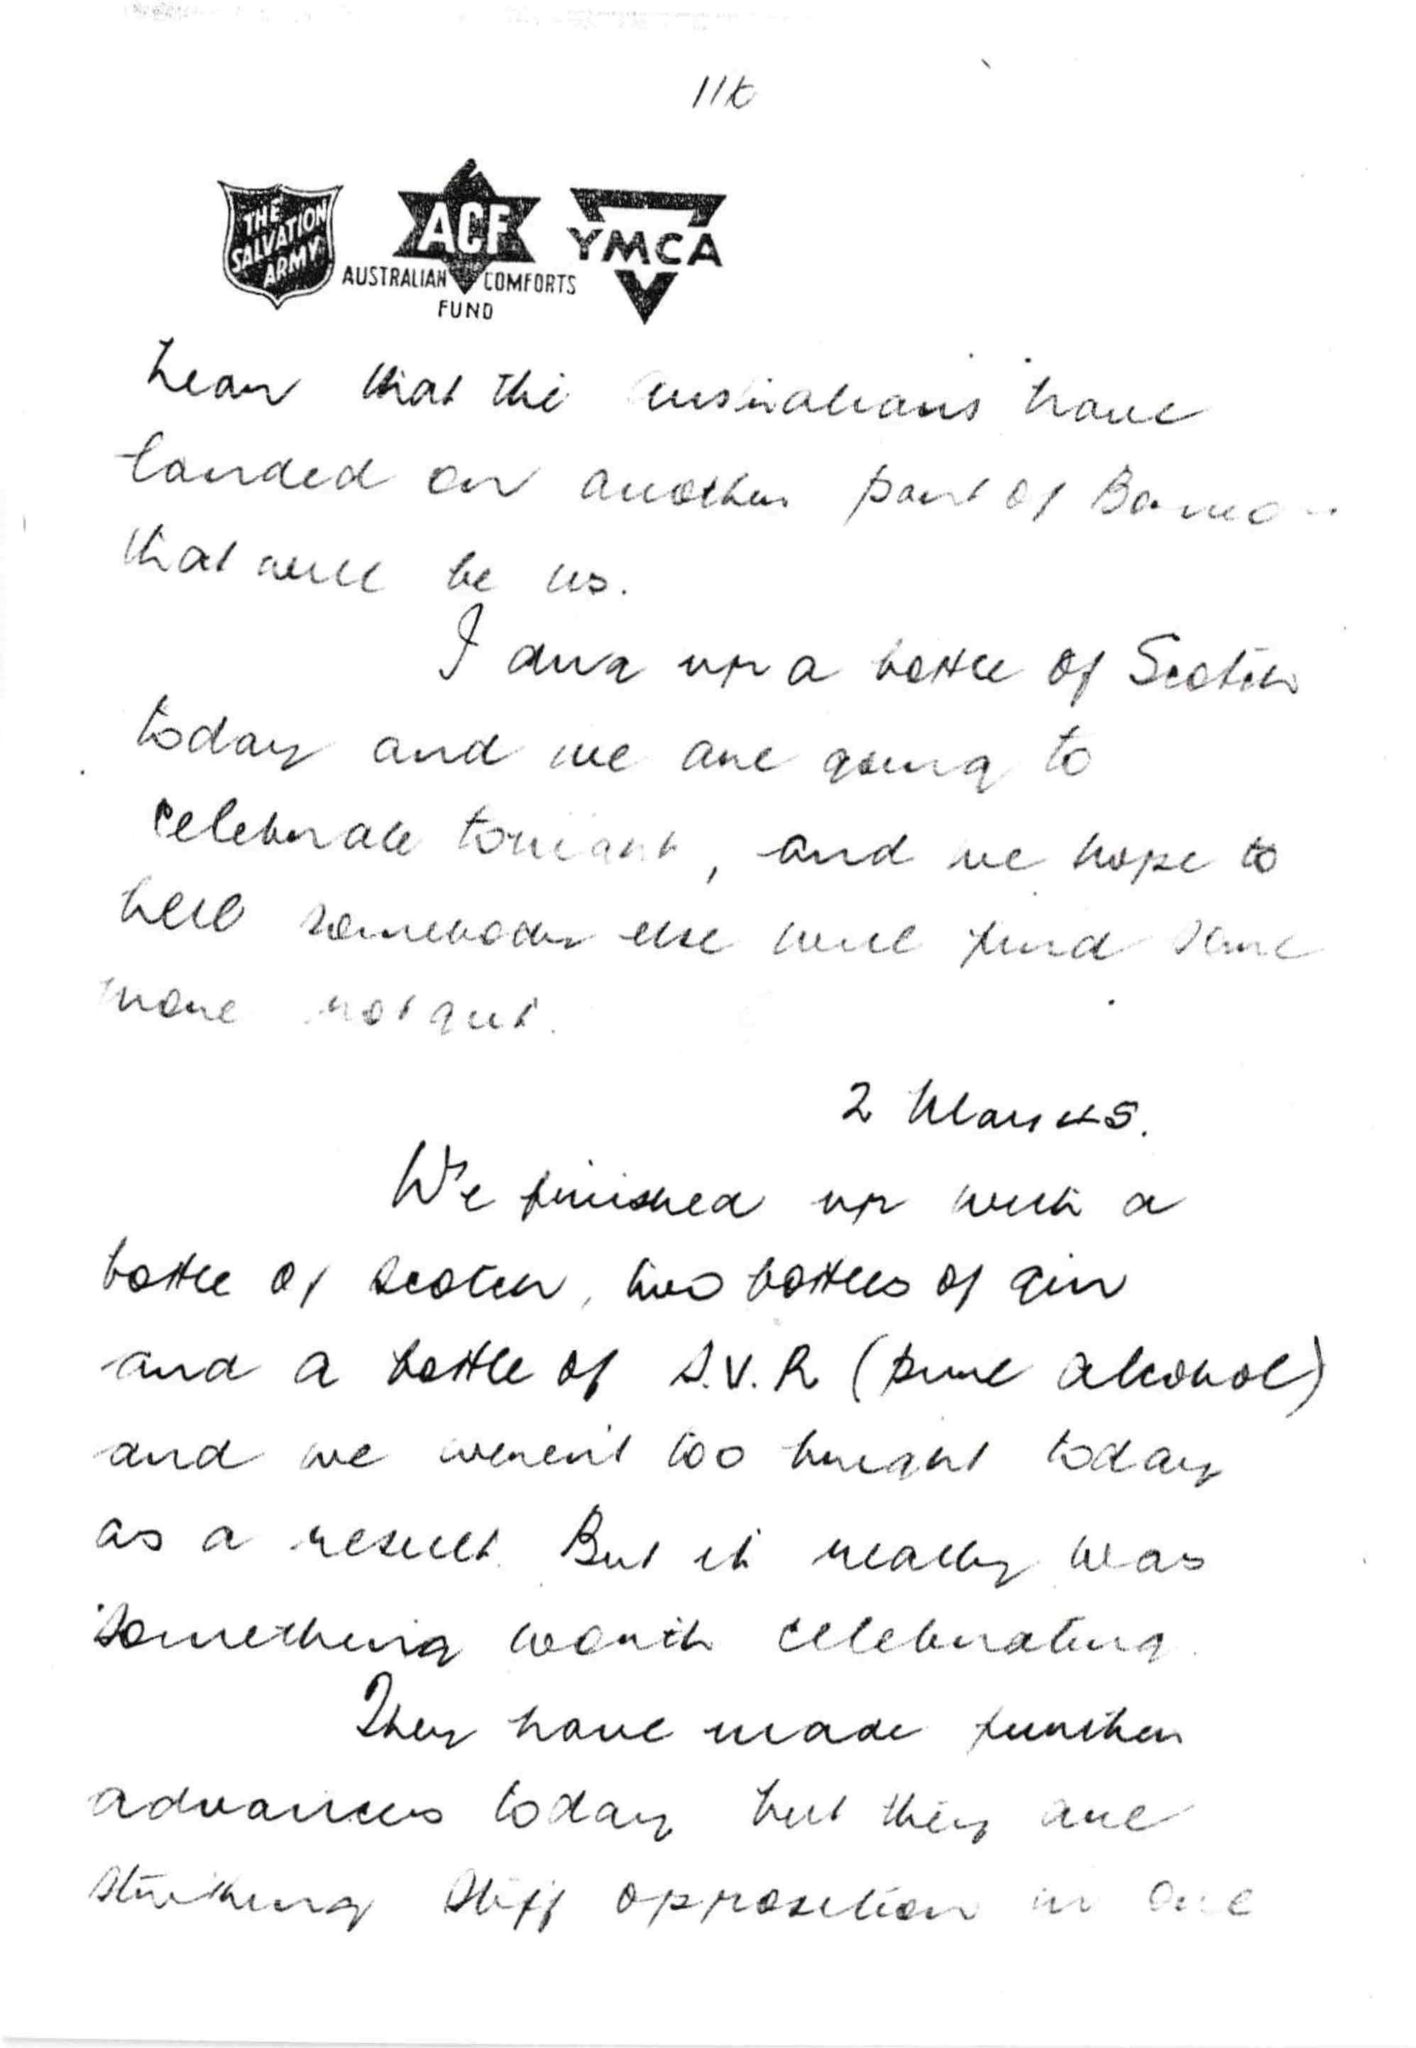 THE
SALVATION
ARMY
ACF
AUSTRALIAN COMFORTS
FUND
YMCA
hear that the Australians have
landed on another part of Borneo -
that will be us.
I dug up a bottle of Scotch
today and we are going to
celebrate tonight, and we hope to
hell somebody else will find some
more rotgut.
2 May 45.
We finished up with a
bottle of Scotch, two bottles of gin
and a bottle of S.V.R (pure alcohol)
and we weren't too bright today
as a result. But it really was
something worth celebrating.
They have made further
advances today but they are
striking stiff opposition in one